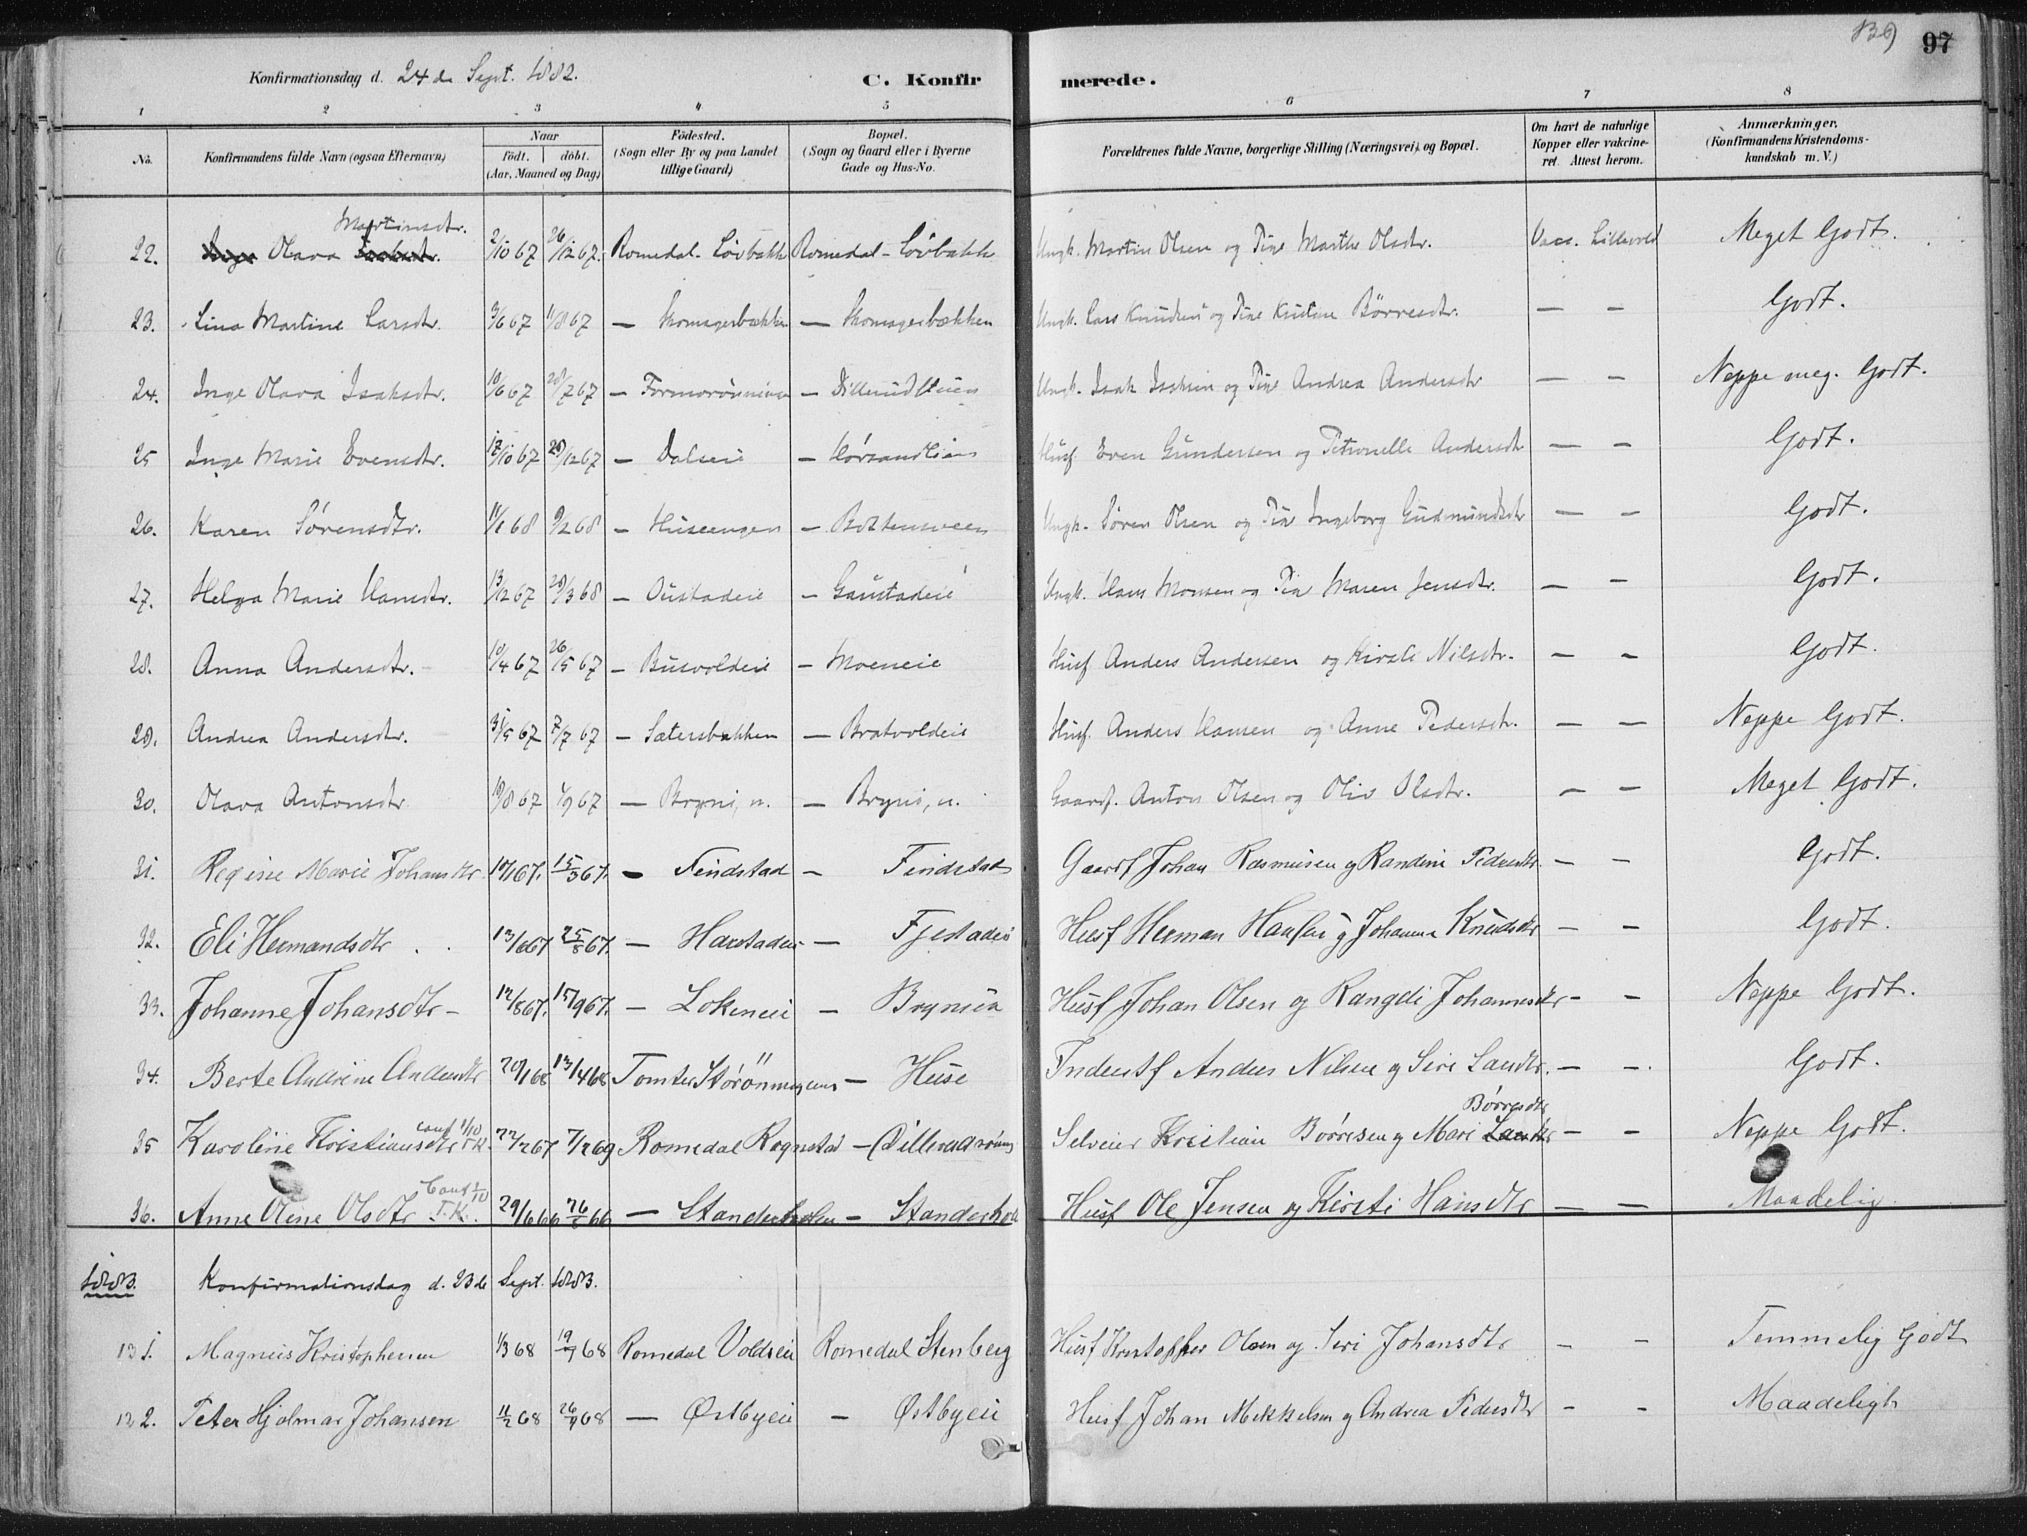 139) 97
Konfirmationsdag d. 24de Sept. 1882. C. Konfirmerede.
1 2 3 4 5 6 7 8
No. Konfirmandens fulde Navn (ogsaa Efternavn) Naar født. døbt. (Aar, Maaned og Dag) Fødested. (Sogn eller By og paa Landet tillige Gaard) Bopæl. (Sogn og Gaard eller i Byerne Gade og Hus-No. Forældrenes fulde Navne, borgerlige Stilling (Næringsvei) og Bopæl. Om havt de naturlige Kopper eller vakcineret. Attest herom. Anmærkninger. (Konfirmandens Kristendomskundskab m. V.)
Martinsdtr.
22. Inge Olava 2/10 67 26/12 67. Romedal - Løvbakk Romedal - Løvbakk Ungk. Martin Olsen og Pige Marthe Olsdtr. Vacc. Meget Godt.
23. Lina Martine Larsdtr. 3/6 67 11/8 67 — Skomagerbækken — Skomagerbækken Ungk. Lars Knudsen og Pige Kristine Børresdtr. — — Godt.
24. Inge Olava Isaksdtr. 10/6 67 28/7 67 — — Ungk. Isak Isaksen og Pige Andrea Andersdtr — — Neppe meg. Godt.
25 Inge Marie Evensdtr. 17/10 67 26/12 67 — Dalseie — Husf. Even Gundersen og Petronelle Andersdtr — — Godt.
26. Karen Sørensdtr. 11/1 68 9/2 68 — Huseengen — Bottensveen Ungk. Søren Olsen og Pige Ingeborg Gudmundsdtr — — Godt.
27. Helga Marie Hansdtr. 13/12 67 29/3 68 — Oustadeie — Gaustadeie Ungk. Hans Monsen og Pige Maren Jensdtr. — — Godt.
28. Anna Andersdtr. 10/4 67 26/5 67 — Busvoldeie — Moeneie Husf Anders Andersen og Kirsti Nilsdtr. — — Godt.
29. Andrea Andersdtr. 31/5 67 7/7 67 — Sætersbakken — Bratvoldeie Husf. Anders Hansen og Anne Pedersdtr. — — Neppe Godt.
30. Olava Antonsdtr 19/8 67 1/9 67 — Bryni, n. — Bryni, n. Gaardf. Anton Olsen og Oliv Olsdtr. — — Meget Godt.
31. Regine Marie Johansdtr 10/1 67. 15/3 67. — Findstad — Findstad Gaardf Johan Rasmusen og Randine Pedersdtr. — — Godt.
32. Eli Hermandsdtr 13/6 67 25/8 67. — Harstadeie — Fjestadeie Husf Herman Hansen og Johanne Knudsdtr — — Godt.
33. Johanne Johansdtr 12/8 67. 15/9 67. — Løkeneie — Brynieie Husf Johan Olsen og Rangdi Johannesdtr — — Neppe Godt.
34. Berte Andrine Andersdtr 20/1 68 13/4 68 Tomter Størönningens — Huse Inderstf Anders Nilsen og Siri Larsdtr. — — Godt.
Conf 1/10 Børresdtr
35 Karoline Kristiansdtr T.K. 22/2 67 7/2 69 Romedal Rognstad — Selveier Kristian Børresen og Mari — — Neppe Godt.
Conf 1/10
36. Anne Oline Olsdtr T.K. 29/6 66 26/8 66 — Standerholen — Standerhole Husf Ole Jensen og Kirsti Hansdtr — — Maadelig
1883. Konfirmationsdag d. 23de Sept. 1883.
13 1. Magnus Kristophersen 1/3 68 19/7 68 Romedal Voldseie Romedal Stenberg Husf Kristoffer Olsen og Siri Johansdtr — — Temmelig Godt
12 2. Peter Hjalmar Johansen 11/2 68 26/9 68 — Østbyeie — Østbyeie Husf Johan Mikkelsen og Andrea Pedersdtr — — Maadeligt